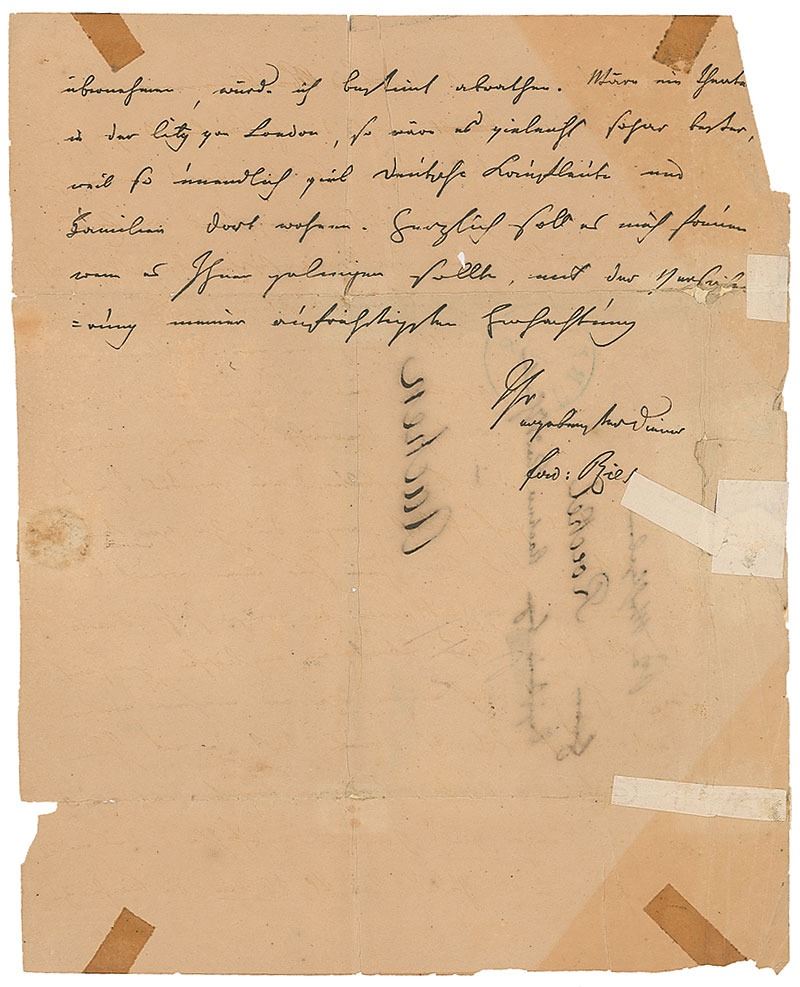 übernehmen, würde ich bestimt abrathen. Wäre ein Theate
in der City von London, so wäre es vieleicht sogar besser,
weil so unendlich viel deutsche Kaufleute und
Familien dort wohnen. Herzlich soll es mich freuen
wenn es Ihnen gelingen sollte, mit der Versiche
=rung meiner aufrichtigsten Hochachtung
Ihr
ergebenster Diener
Ferd: Ries
Aachen